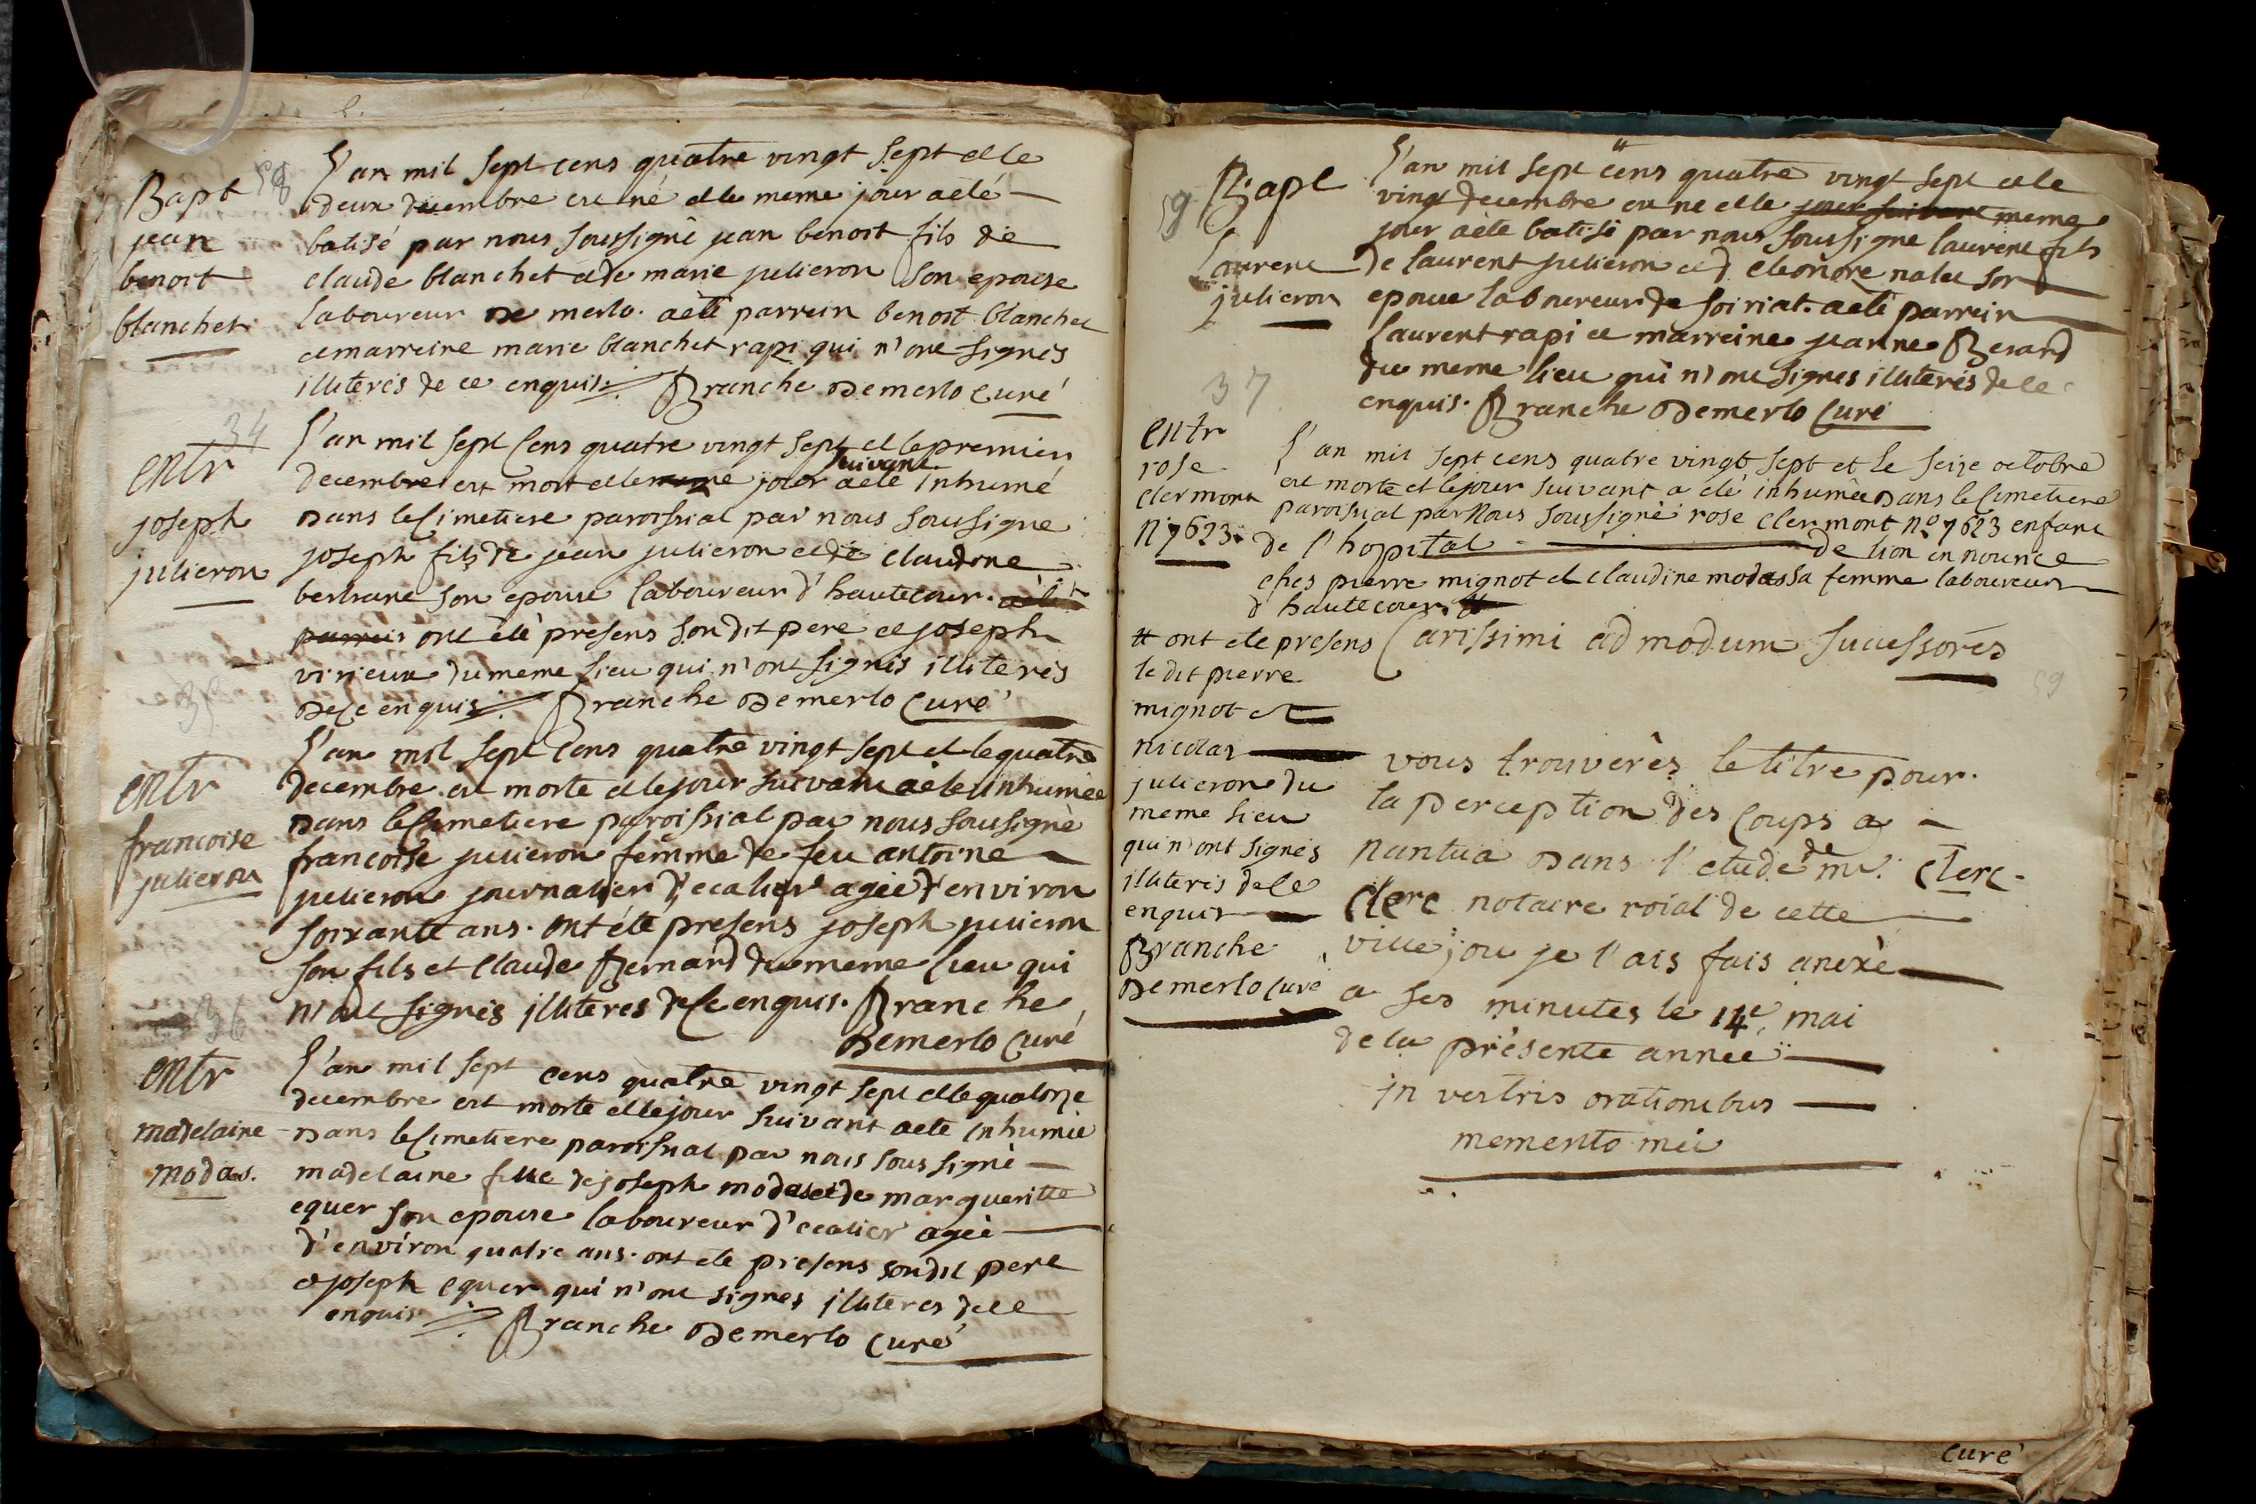 Bapt 58
jean
benoit
blanchet
L'an mil sept cens quatre vingt sept et le
deux decembre est né et le meme jour a eté
batisé par nous soussigné jean benoit fils de
claude blanchet et de marie julieron son epouse
laboureur de merlo. a eté parrein benoit blanchet
et marreine marie blanchet rapi qui n'ont signés
illiterés de ce enquis. Branche Demerlo Curé
34
entr
joseph
julieron
L'an mil sept cens quatre vingt sept et le premier
decembre est mort et le meme jour suivant a eté inhumé
dans le cimetiere paroissial par nous soussigné
joseph fils de jean julieron et de claudine
bertrane son epouse laboureur d'hautecour. a eté
parrein ont eté presens son dit pere et joseph
virieux du meme lieu qui n'ont signés illiterés
de ce enquis. Branche Demerlo Curé
35
entr
francoise
julieron
L'an mil sept cens quatre vingt sept et le quatre
decembre est morte et le jour suivant a eté inhumée
dans le cimetiere paroissial par nous soussigné
francoise julieron femme de feu antoine
julieron journalier d'ecalier agée d'environ
soixante ans. ont été presens joseph julieron
son fils et claude Bernard du meme lieu qui
n'ont signés illiteres de ce enquis. Branche
Demerlo Curé
36
entr
madelaine
modas.
L'an mil sept cens quatre vingt sept et le quatorze
decembre est morte et le jour suivant a eté inhumée
dans le cimetiere paroissial par nous soussigné
madelaine fille de joseph modas et de margueritte
equer son epouse laboureur d'ecalier agée
d'environ quatre ans. ont eté presens son dit pere
et joseph equer qui n'ont signes illiteres de ce
enquis. Branche Demerlo Curé
59 Bapt
Laurent
julieron
L'an mil sept cens quatre vingt sept et le
vingt decembre est né et le jour suivant meme
jour a eté batisé par nous soussigné laurent fils
de laurent julieron et d'eleonore nalet son
epouse laboureur de soiriat. a eté parrein
laurent rapi et marreine jeanne Berard
du meme lieu qui n'ont signés illiterés de ce
enquis. Branche Demerlo Curé
37
entr
rose
clermont
n 7623.
L'an mil sept cens quatre vingt sept et le seize octobre
est morte et le jour suivant a eté inhumée dans le cimetiere
paroissial par nous soussigné rose clermont no 7623 enfant
de l'hopital de lion en nourice
ches pierre mignot et claudine modas sa femme laboureur
d'hautecour. #
# ont ete presens
le dit pierre
mignot et
nicolas
julieron du
meme lieu
qui n'ont signés
illiterés de ce
enquis
Branche
Demerlo Curé
Carissimi ad modum successores
59
vous trouverês le titre pour
la perception des Coups a
nantua dans l'etude de mr. Clerc
Clerc notaire roial de cette
ville, ou je l'ais fais anexè
a ses minutes le 14e mai
de la présente année
in vestris orationibus
memento mei
curé